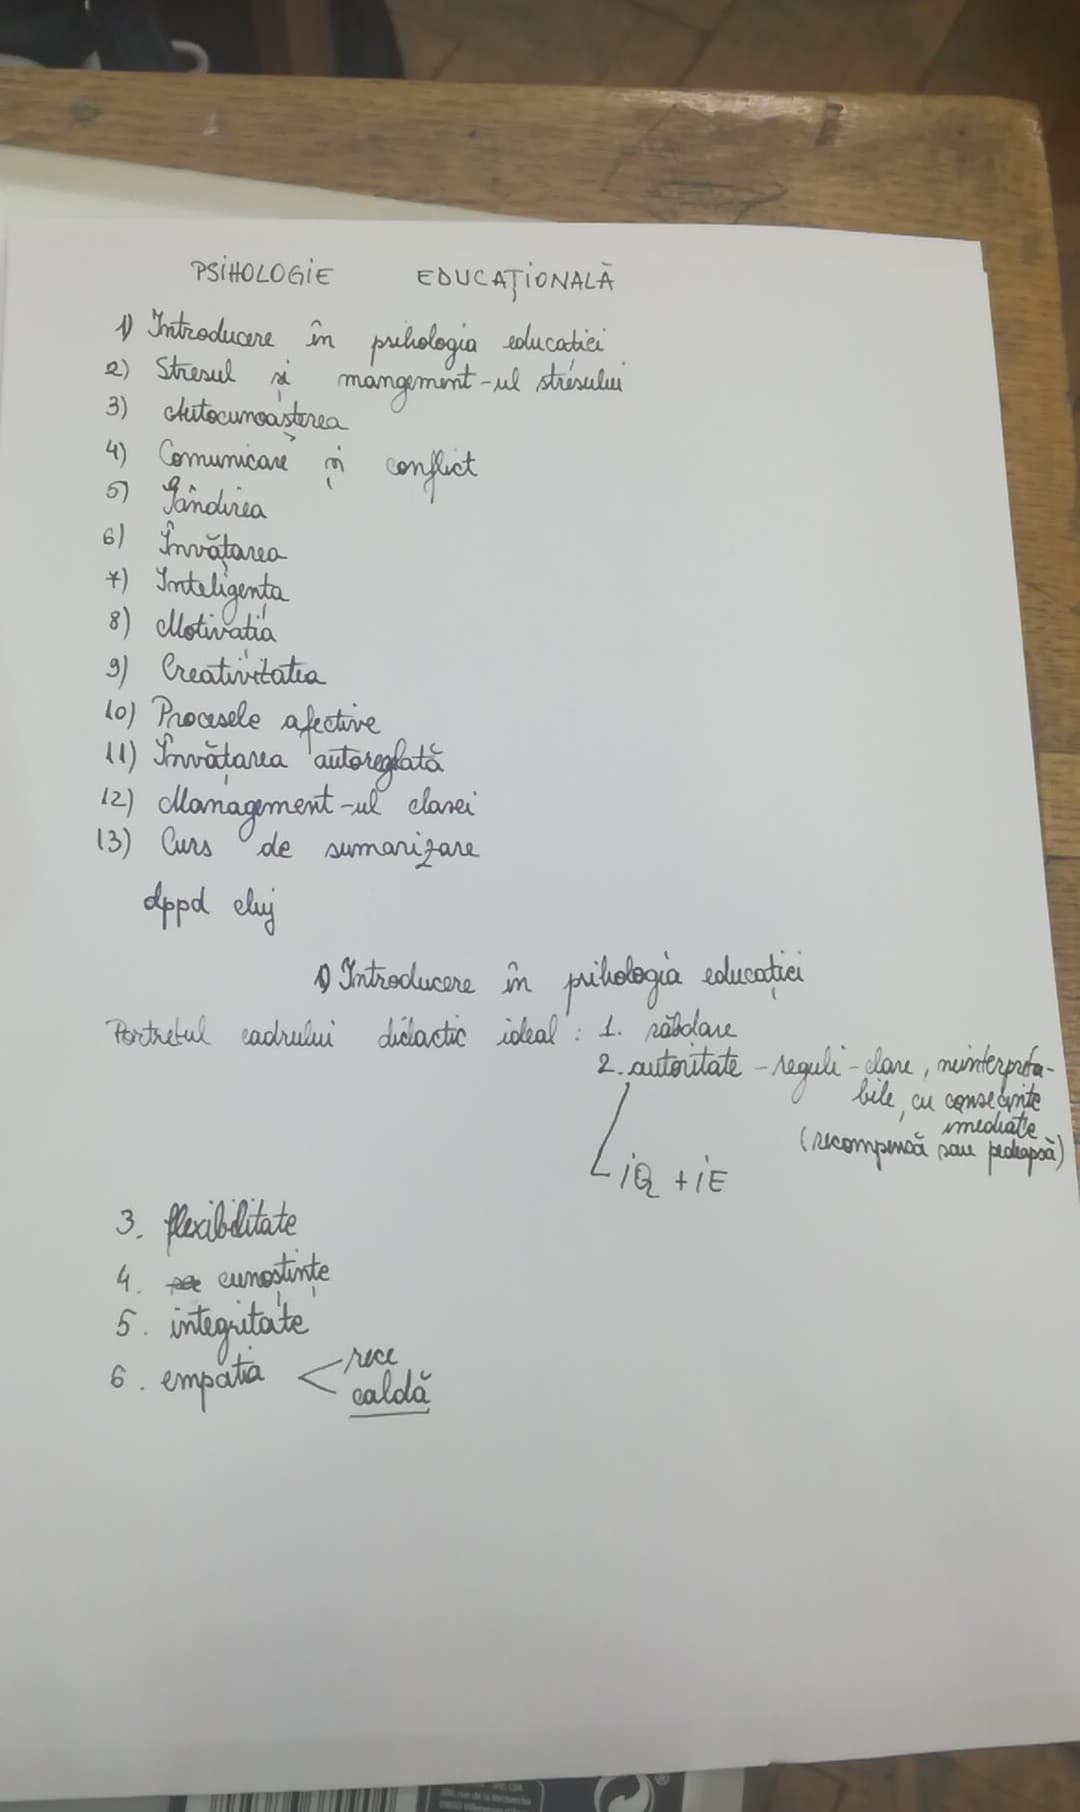 PSIHOLOGIE EDUCAȚIONALĂ
1) Introducere în psihologia educației
2) Stresul și mangement-ul stresului
3) Autocunoașterea
4) Comunicare și conflict
5) Gândirea
6) Învățarea
7) Inteligența
8) Motivația
9) Creativitatea
10) Procesele afective
11) Învățarea autoreglată
12) Management-ul clasei
13) Curs de sumarizare
dppd cluj
1) Introducere în psihologia educației
Portretul cadrului didactic ideal : 1. răbdare
2. autoritate - reguli - clare, neinterpreta-
bile, cu consecințe
imediate
(recompensă sau pedeapsă)
IQ + IE
3. flexibilitate
4. cunoștințe
5. integritate
6. empatia < rece
caldă